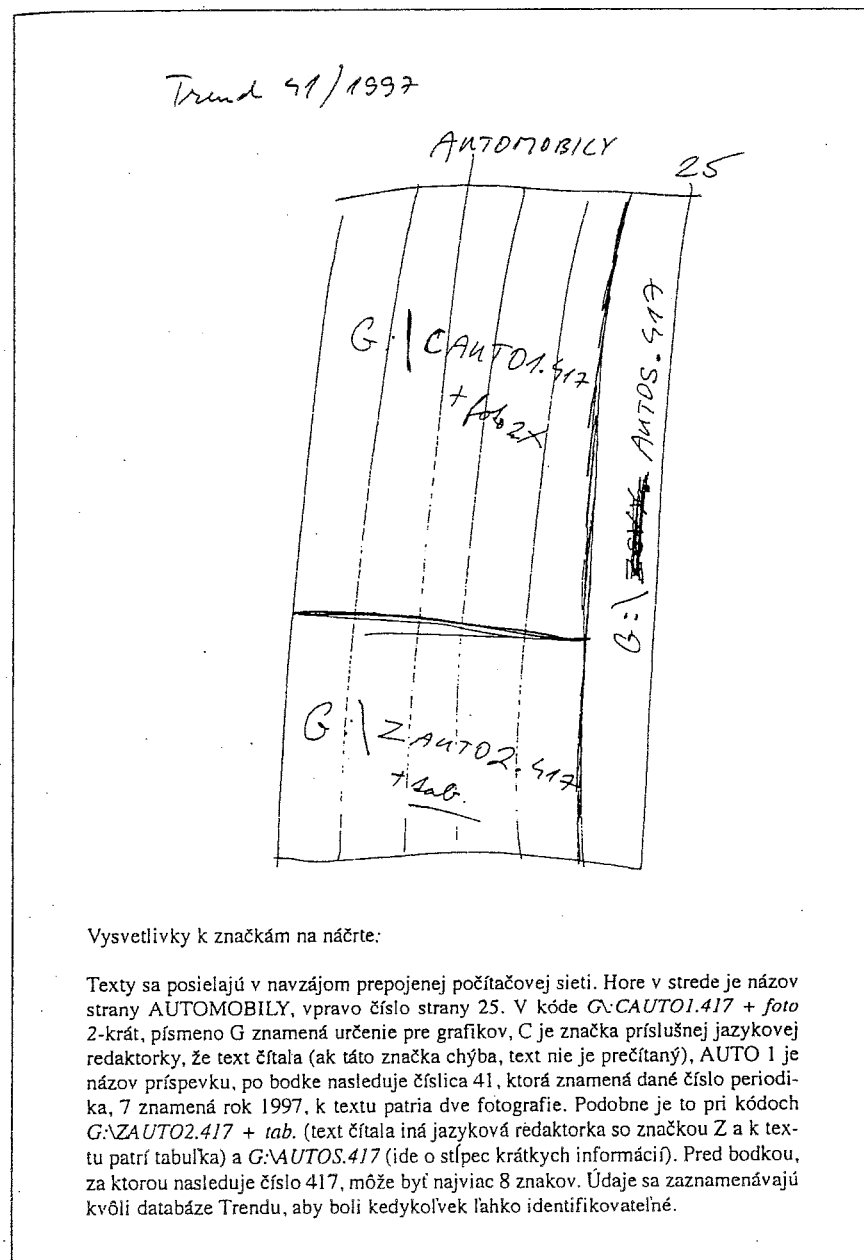 Trend 41/1997
AUTOMOBILY
25
G:\CAUTO1.417
+ foto 2x
G:\ AUTOS.417
G:\ZAUTO2.417
+ tab.
Vysvetlivky k značkám na náčrte:
Texty sa posielajú v navzájom prepojenej počítačovej sieti. Hore v strede je názov
strany AUTOMOBILY, vpravo číslo strany 25. V kóde G\:CAUTO1.417 + foto
2-krát, písmeno G znamená určenie pre grafikov, C je značka príslušnej jazykovej
redaktorky, že text čítala (ak táto značka chýba, text nie je prečítaný), AUTO 1 je
názov príspevku, po bodke nasleduje číslica 41, ktorá znamená dané číslo periodi-
ka, 7 znamená rok 1997, k textu patria dve fotografie. Podobne je to pri kódoch
G:\ZAUTO2.417 + tab. (text čítala iná jazyková redaktorka so značkou Z a k tex-
tu patrí tabuľka) a G:\AUTOS.417 (ide o stĺpec krátkych informácií). Pred bodkou,
za ktorou nasleduje číslo 417, môže byť najviac 8 znakov. Údaje sa zaznamenávajú
kvôli databáze Trendu, aby boli kedykoľvek ľahko identifikovateľné.